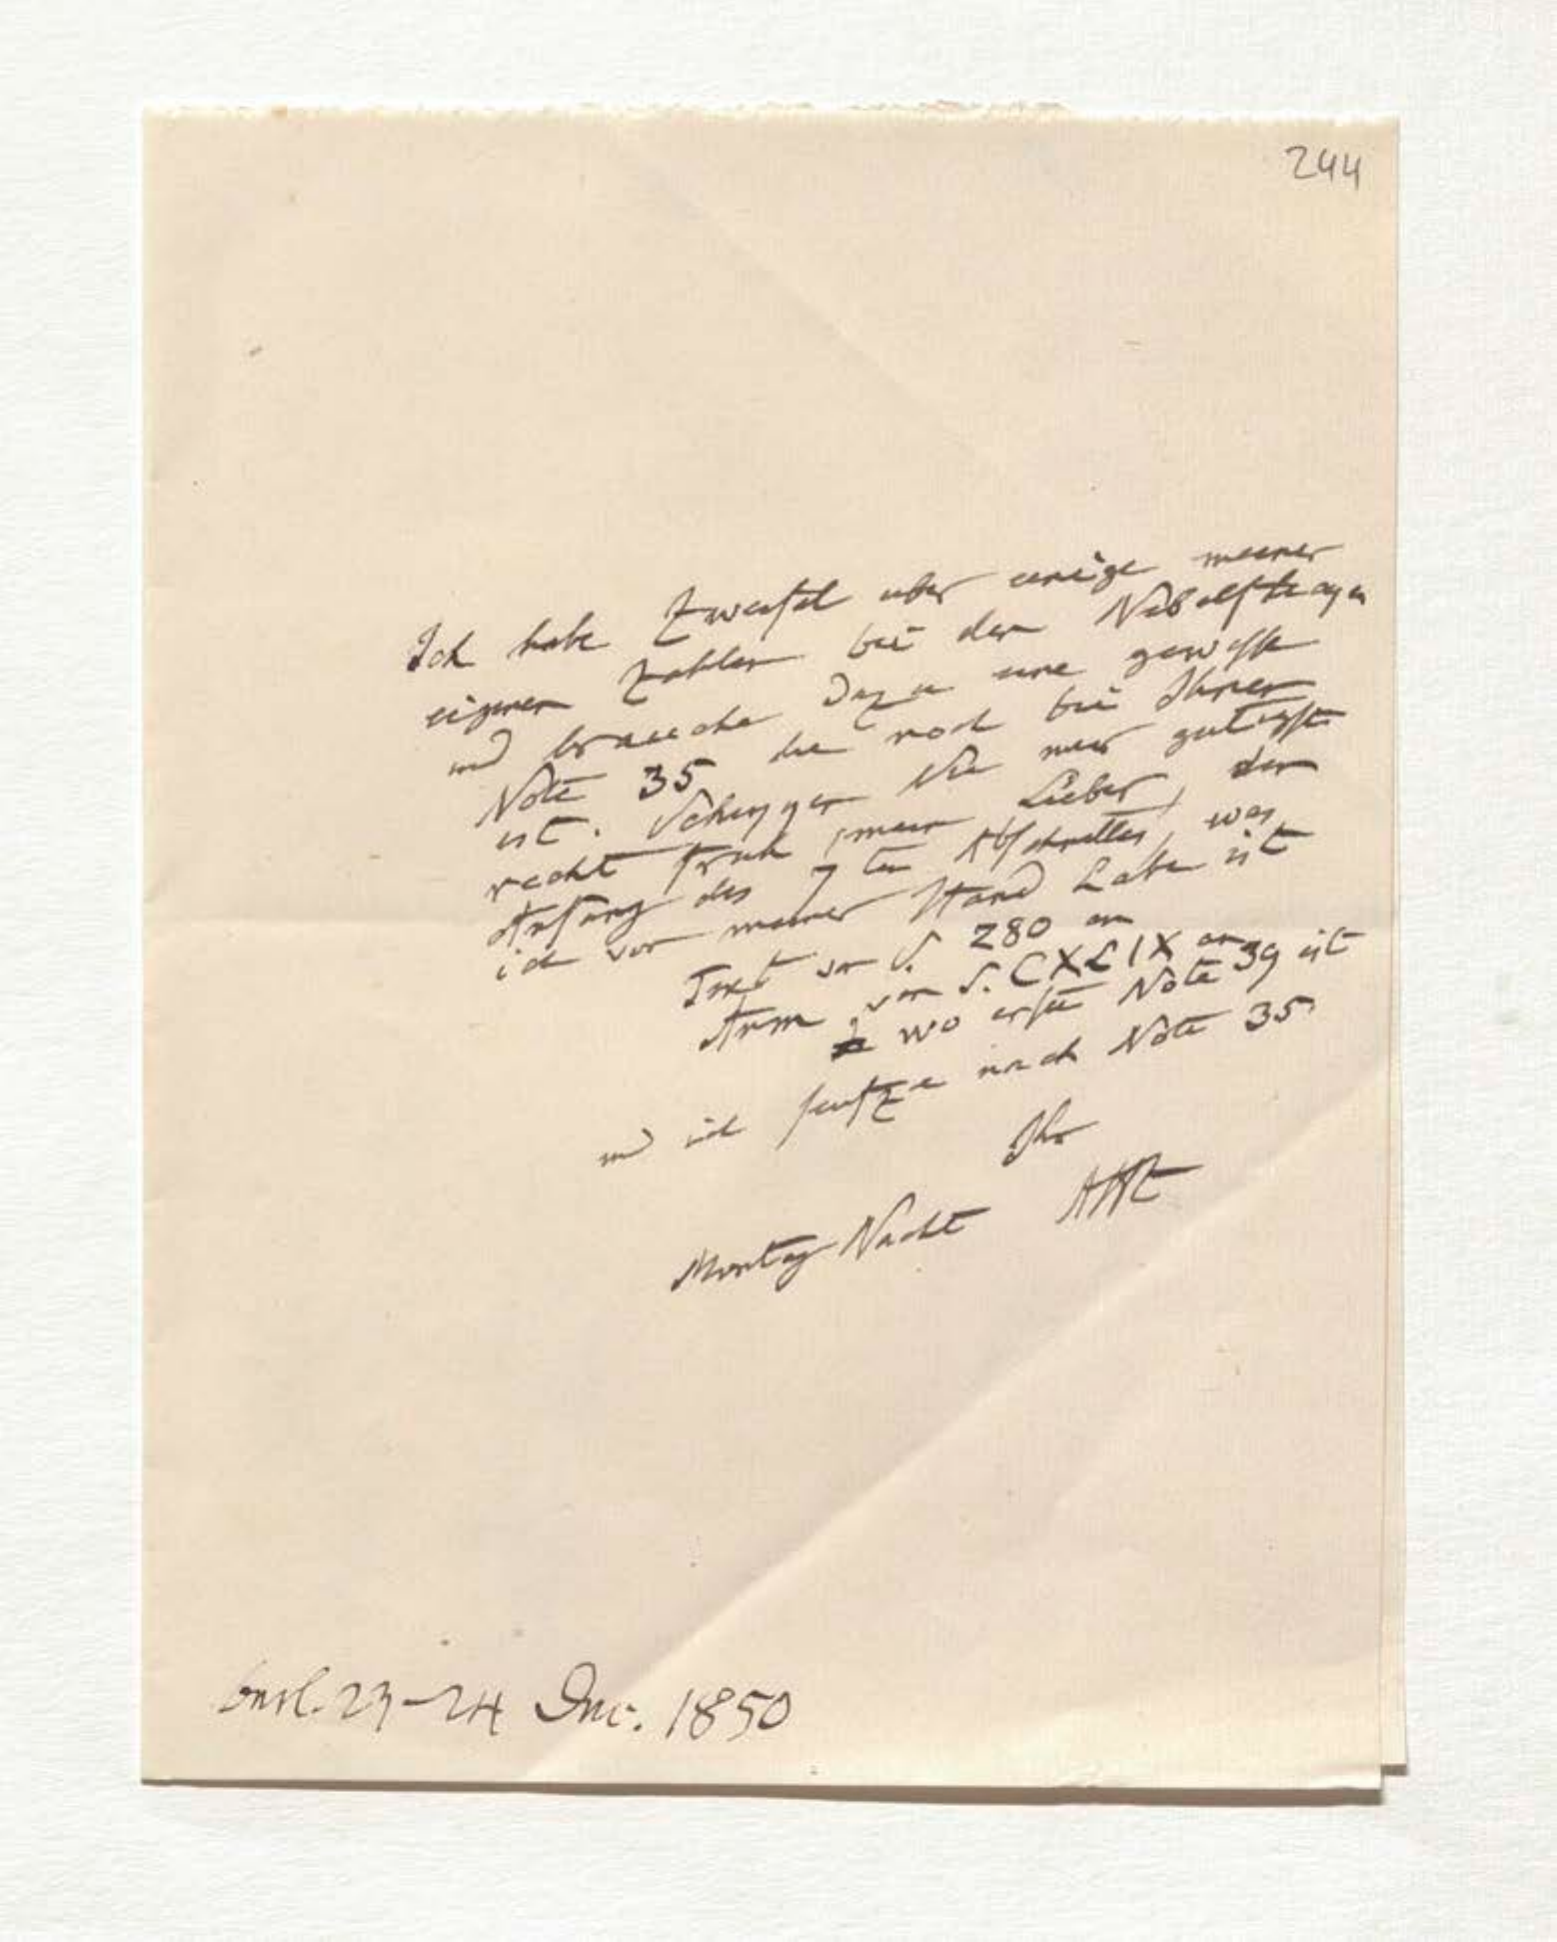 244
Ich habe Zweifel uber einige meiner
eigenen Zahlen bei den Nebelflecken
und brauche dazu eine gewisse
Note 35 die noch bei Ihnen
ist. Schicken Sie mir gutigst
recht fruh, mein Lieber, den
Anfang des 7ten Abschnittes, was
ich von meiner Hand habe ist
Text von S. 280 an
Anm von S. CXLIX an
wo erste Note 39 ist
und ich seufze nach Note 35.
Ihr
AHt
Montag Nacht
23–24 Dec. 1850